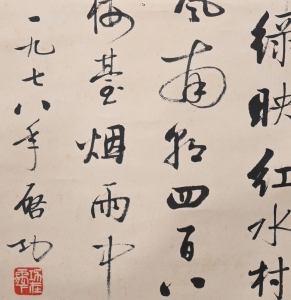 绿映红水村
風南朝四百八
樓臺烟雨中
一九七八年啓功